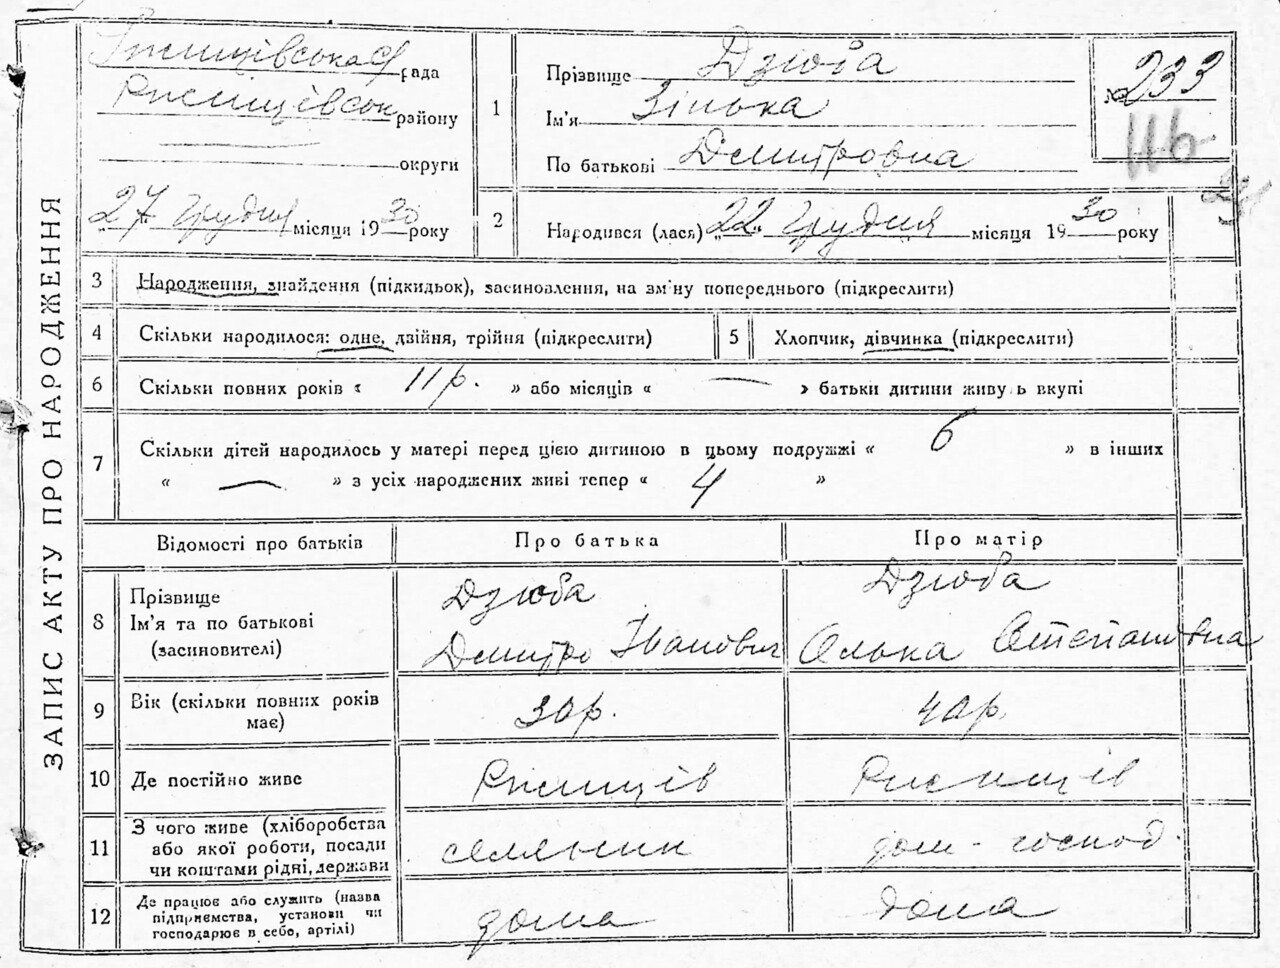 ЗАПИС АКТУ ПРО НАРОДЖЕННЯ
Ржищівська с/рада
Ржищівськ району
округи
27 грудня місяця 1930 року
1
Прізвище Дзюба
Ім'я Зінька
По батькові Демитровна
№ 233
2
Народився (лася) „22 грудня місяця 1930 року
3 Народження, знайдення (підкидьок), засиновлення, на зм'ну попереднього (підкреслити)
4 Скільки народилося: одне, двійня, трійня (підкреслити)
5 Хлопчик, дівчинка (підкреслити)
6 Скільки повних років « 11 р. » або місяців « — » батьки дитини живу ь вкупі
7 Скільки дітей народилось у матері перед цією дитиною в цьому подружжі « 6 » в інших
« — » з усіх народжених живі тепер « 4 »
Відомості про батьків Про батька Про матір
8 Прізвище Ім'я та по батькові (засиновителі)
Дзюба Дзюба
Демитро Іванович Олька Степановна
9 Вік (скільки повних років має) 30 р. 40 р.
10 Де постійно живе Ржищів Ржищів
11 З чого живе (хліборобства
або якої роботи, посади
чи коштами рідні, держави
селянин дом-господ.
12 Де працює або служить (назва
підприємства, установи чи
господарює в себе, артілі)
дома дома